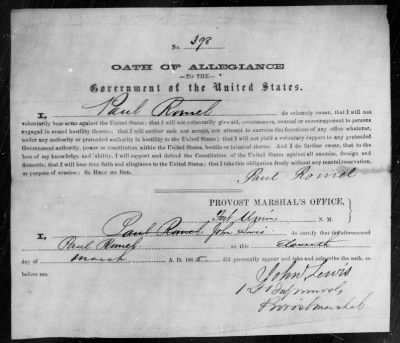 No. 398
OATH OF ALLEGIANCE
—TO THE—
Government of the United States.
I, Paul Romel do solemnly swear, that I will not
voluntarily bear arms against the United States; that I will not voluntarily give aid, countenance, counsel or encouragement to persons
engaged in armed hostility thereto; that I will neither seek nor accept, nor attempt to exercise the functions of any office whatever,
under any authority or pretended authority in hostility to the United States; that I will not yield a voluntary support to any pretended
Government authority, power or constitution within the United States, hostile or inimical thereto. And I do further swear, that to the
best of my knowledge and ability, I will support and defend the Constitution of the United States against all enemies, foreign and
domestic, that I will bear true faith and allegiance to the United States; that I take this obligation freely without any mental reservation,
or purpose of evasion: So Help me God.
Paul Romel
PROVOST MARSHAL'S OFFICE,
Fort Union N. M.
I, Paul Romel John Lewis do certify that the aforenamed
Paul Romel on this eleventh
day of March A. D. 1865 did personally appear and take and subscribe the oath
before me.
John Lewis
1 Lt
Provost Marshal